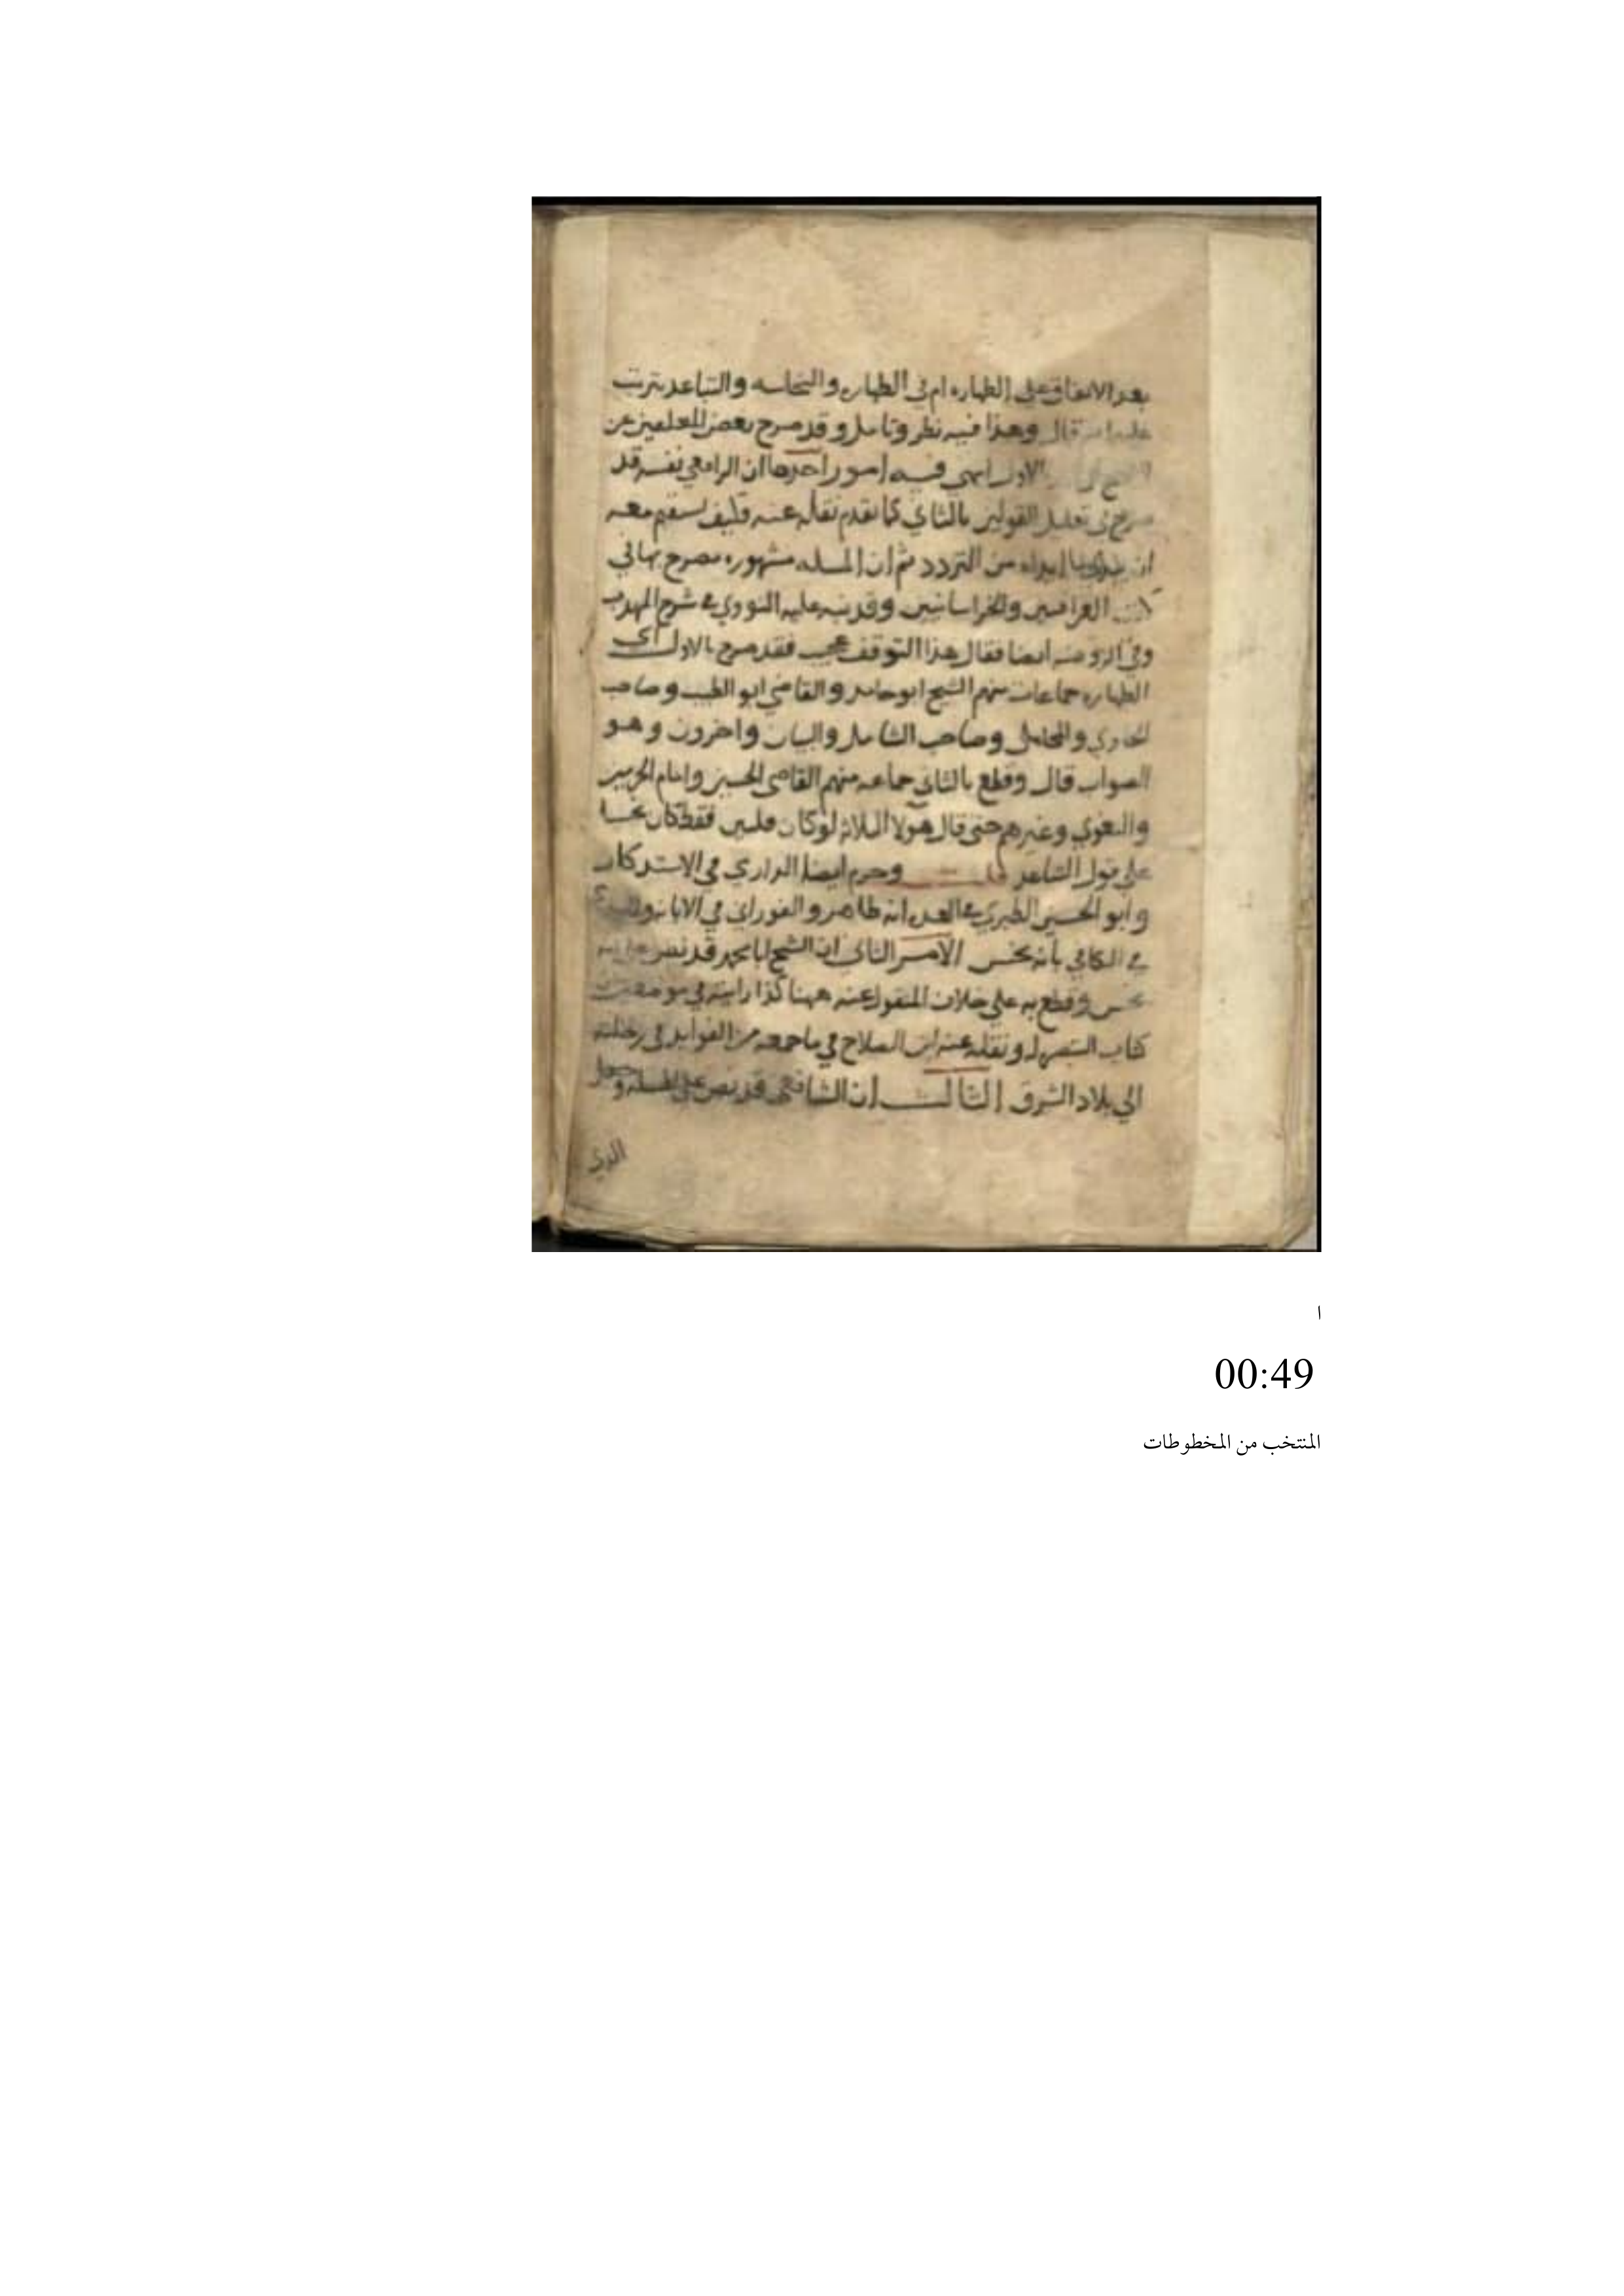 بعد الاتفاق على الطهاره ام في الطهاره والنجاسه والتباعد يترتب
قال وهذا فيه نظر وتامل وقد صرح بعض المعلقين عن
الشيخ الاول انتهى فيه امور احدها ان الرافعي نفسه قد
صرح في تعليل القولين بالثاني كما تقدم نقله عنه فكيف يستقيم معه
ان ابداه من التردد ثم ان المسله مشهوره مصرح بها في
كتب العراقيين والخراسانيين وقد نبه عليه النووي في شرح المهذب
وفي الروضه ايضا فقال هذا التوقف عجب فقد صرح بالاول اي
الطهاره جماعات منهم الشيخ ابو حامد والقاضي ابو الطيب وصاحب
الحاوي والمحاملي وصاحب الشامل والبيان واخرون وهو
الصواب قال وقطع بالثاني جماعه منهم القاضي الحسين وامام الحرمين
والبغوي وغيرهم حتى قال هولا الثلاثه لو كان قلتين فقط كان نجسا
على قول التباعد قلت وجزم ايضا الرازي في الاستذكار
وابو الحسين الطبري في العده انه طاهر والفوراني في الابانه
في الكافي بانه نجس الامر الثاني ان الشيخ ابا محمد قد نص على انه
نجس وقطع به على خلاف المنقول عنه ههنا كذا رايته في موضعين
كتاب التبصره ونقله عنه ابن الصلاح في ما جمعه من الفوايد في رحلته
الي بلاد الشرق الثالث ان الشافعي قد نص على المسله وجعل
الذي
ا
00:49
المنتخب من المخطوطات